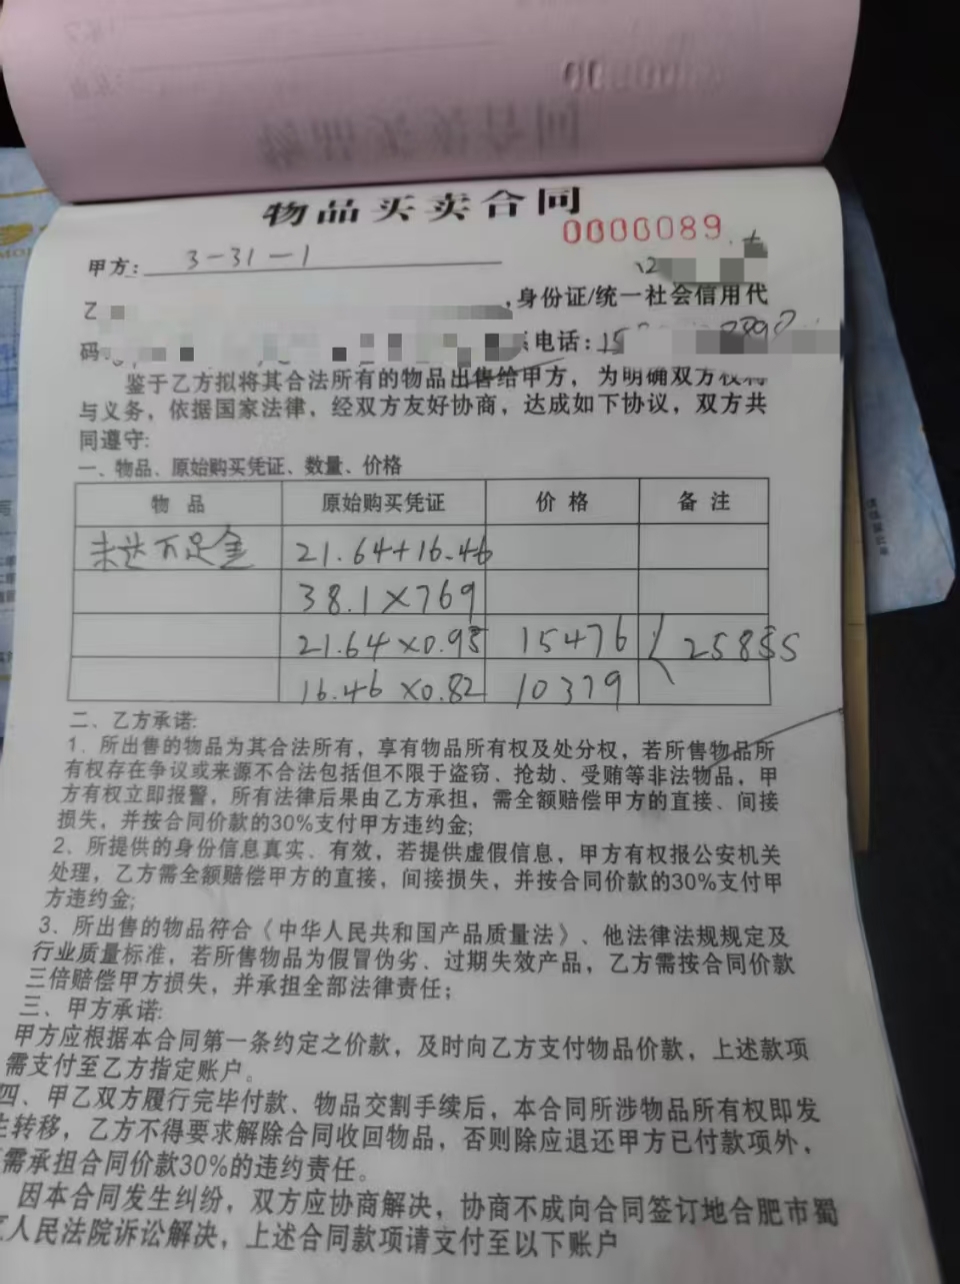 物品买卖合同
0000089
甲方: 3-31-1
乙
,身份证/统一社会信用代
码
电话: 15
鉴于乙方拟将其合法所有的物品出售给甲方，为明确双方权利
与义务，依据国家法律，经双方友好协商，达成如下协议，双方共
同遵守:
一、物品、原始购买凭证、数量、价格
物 品 原始购买凭证 价 格 备 注
未达万足金 21.64+16.46
38.1×769
21.64×0.93 15476 25855
16.46×0.82 10379
二、乙方承诺:
1、所出售的物品为其合法所有，享有物品所有权及处分权，若所售物品所
有权存在争议或来源不合法包括但不限于盗窃、抢劫、受贿等非法物品，甲
方有权立即报警，所有法律后果由乙方承担，需全额赔偿甲方的直接、间接
损失，并按合同价款的30%支付甲方违约金;
2、所提供的身份信息真实、有效，若提供虚假信息，甲方有权报公安机关
处理，乙方需全额赔偿甲方的直接，间接损失，并按合同价款的30%支付甲
方违约金;
3、所出售的物品符合《中华人民共和国产品质量法》、他法律法规规定及
行业质量标准，若所售物品为假冒伪劣、过期失效产品，乙方需按合同价款
三倍赔偿甲方损失，并承担全部法律责任；
三、甲方承诺:
甲方应根据本合同第一条约定之价款，及时向乙方支付物品价款，上述款项
需支付至乙方指定账户。
四、甲乙双方履行完毕付款、物品交割手续后，本合同所涉物品所有权即发
生转移，乙方不得要求解除合同收回物品，否则除应退还甲方已付款项外，
需承担合同价款30%的违约责任。
因本合同发生纠纷，双方应协商解决，协商不成向合同签订地合肥市蜀
人民法院诉讼解决，上述合同款项请支付至以下账户